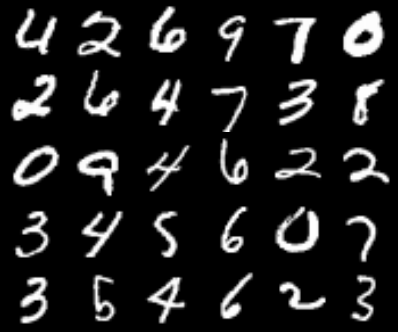 4 2 6 9 7 0
2 6 4 7 3 8
0 9 4 6 2 2
3 4 5 6 0 7
3 5 4 6 2 3